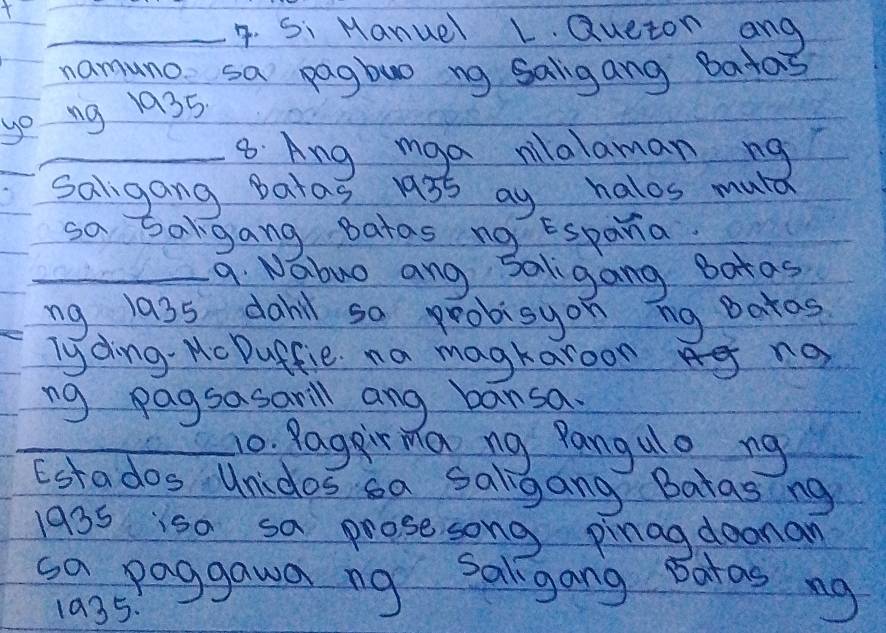 7. Si Manuel L. Quezon ang
namuno sa pagbuo ng Saligang Batas
yo ng 1935.
8. Ang mga nilalaman ng
Saligang Batas 1935 ay halos mula
sa Saligang Batas ng España.
9. Nabuo ang Saligang Batas
ng 1935 dahil sa probisyon ng Batas
Tyding-McDuffie. na magkaroon na
ng pagsasarill ang bansa.
10. Pagpirma ng Pangulo ng
Estados Unidos sa Saligang Batas ng
1935 isa sa prosesong pinagdaanan
sa paggawa ng Saligang Batas ng
1935.